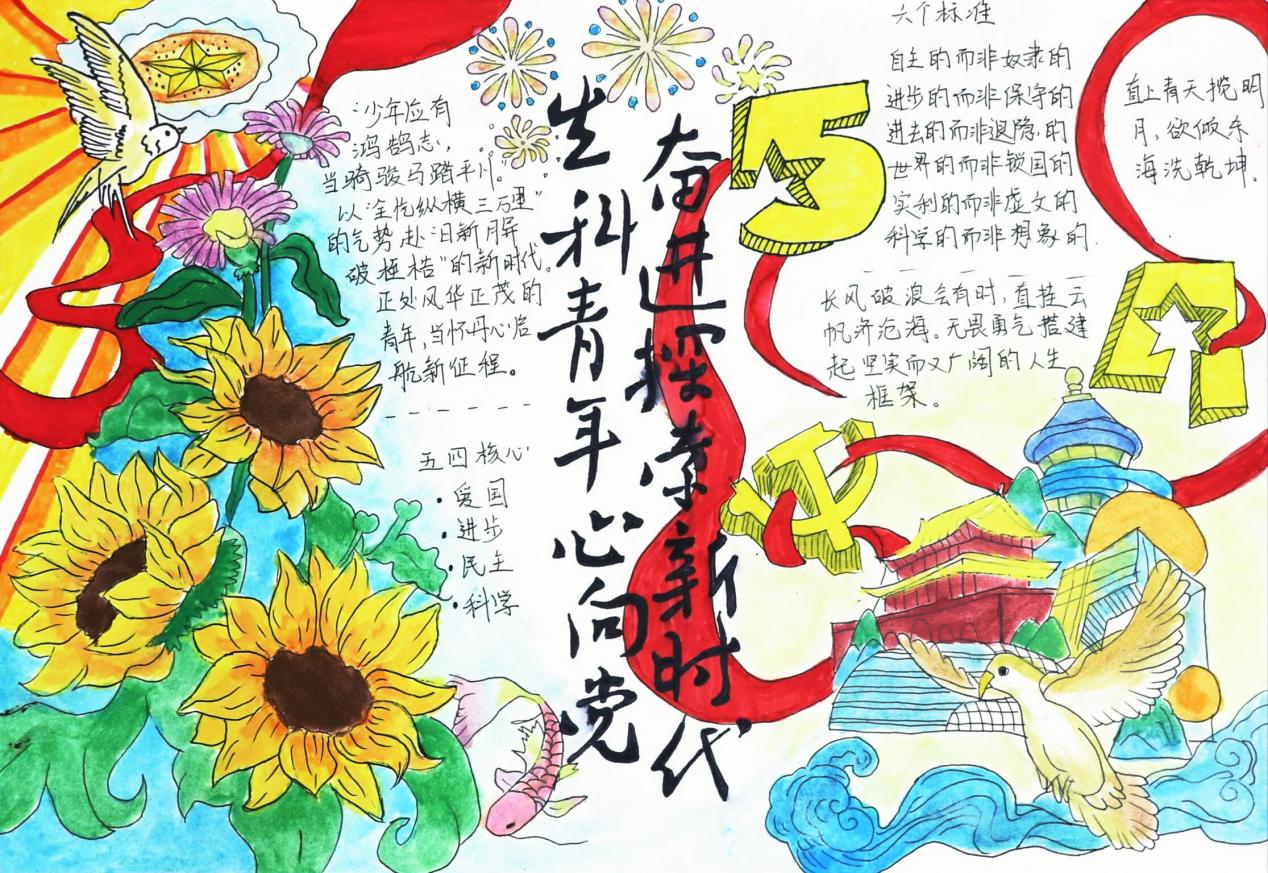 “少年应有
鸿鹄志,
当骑骏马踏平川。
以“全忱纵横三万里”
的气势赴“日新月屏
破桎梏”的新时代。
正处风华正茂的
青年,当怀丹心启
航新征程。
五四核心
·爱国
·进步
·民主
·科学
生科青年心向党
奋进探索新时代
5
4
六个标准
自主的而非奴隶的
进步的而非保守的
进去的而非退隐的
世界的而非锁国的
实利的而非虚文的
科学的而非想象的.
长风破浪会有时,直挂云
帆济沧海。无畏勇气搭建
起坚实而又广阔的人生
框架。
直上青天揽明
月,欲倾东
海洗乾坤.